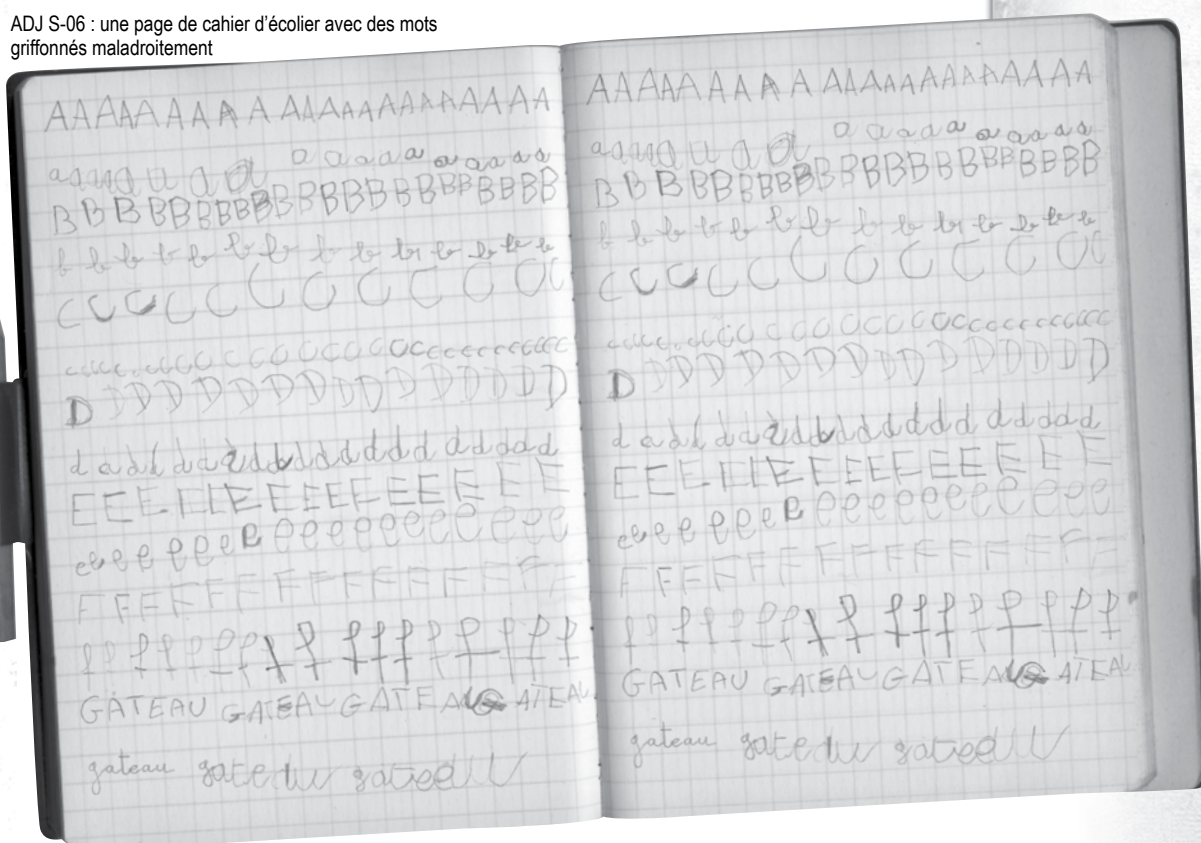 ADJ S-06 : une page de cahier d'écolier avec des mots
griffonnés maladroitement
AAAAA A A A A AAAAAAAAAAAA
aaaaa a a a a a a a a a a a a
B B B BBBBBBBBBBBBBBBBB
b b b b b b b b b b b b b b
C C C C C C C C C C C C
cccc.cccc c c c c c c c c cccccccccc
D D D D D D D D D D D D D D D D
d a d d d a a d d d d d d d d d d d d d
E E E E E E E E E E E E E E E
e e e e e e e e e e e e e e e e e e
F F F F F F F F F F F F F F
f f f f f f f f f f f f f f f f
GÂTEAU GATEAU GÂTEAU GATEAU
gateau gateau gateau
AAAAA A A A A AAAAAAAAAAAA
aaaaa a a a a a a a a a a a a
B B B BBBBBBBBBBBBBBBBB
b b b b b b b b b b b b b b
C C C C C C C C C C C C
cccc.cccc c c c c c c c c cccccccccc
D D D D D D D D D D D D D D D D
d a d d d a a d d d d d d d d d d d d d
E E E E E E E E E E E E E E E
e e e e e e e e e e e e e e e e e e
F F F F F F F F F F F F F F
f f f f f f f f f f f f f f f f
GATEAU GATEAU GATEAU GATEAU
gateau gateau gateau